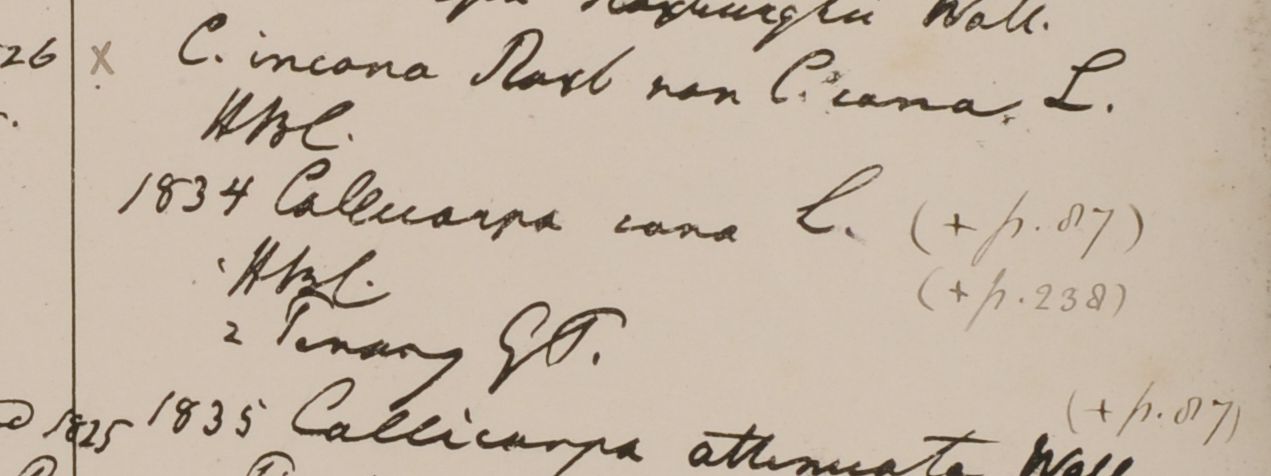 Roxburghii Wall.
26 x C. incana Roxb non C. cana L.
HBC.
1834 Callicarpa cana L. (+ p. 87)
HBC. (+ p. 238)
2 Penang GP.
(+ p. 87)
1825 1835 Callicarpa attenuata Wall